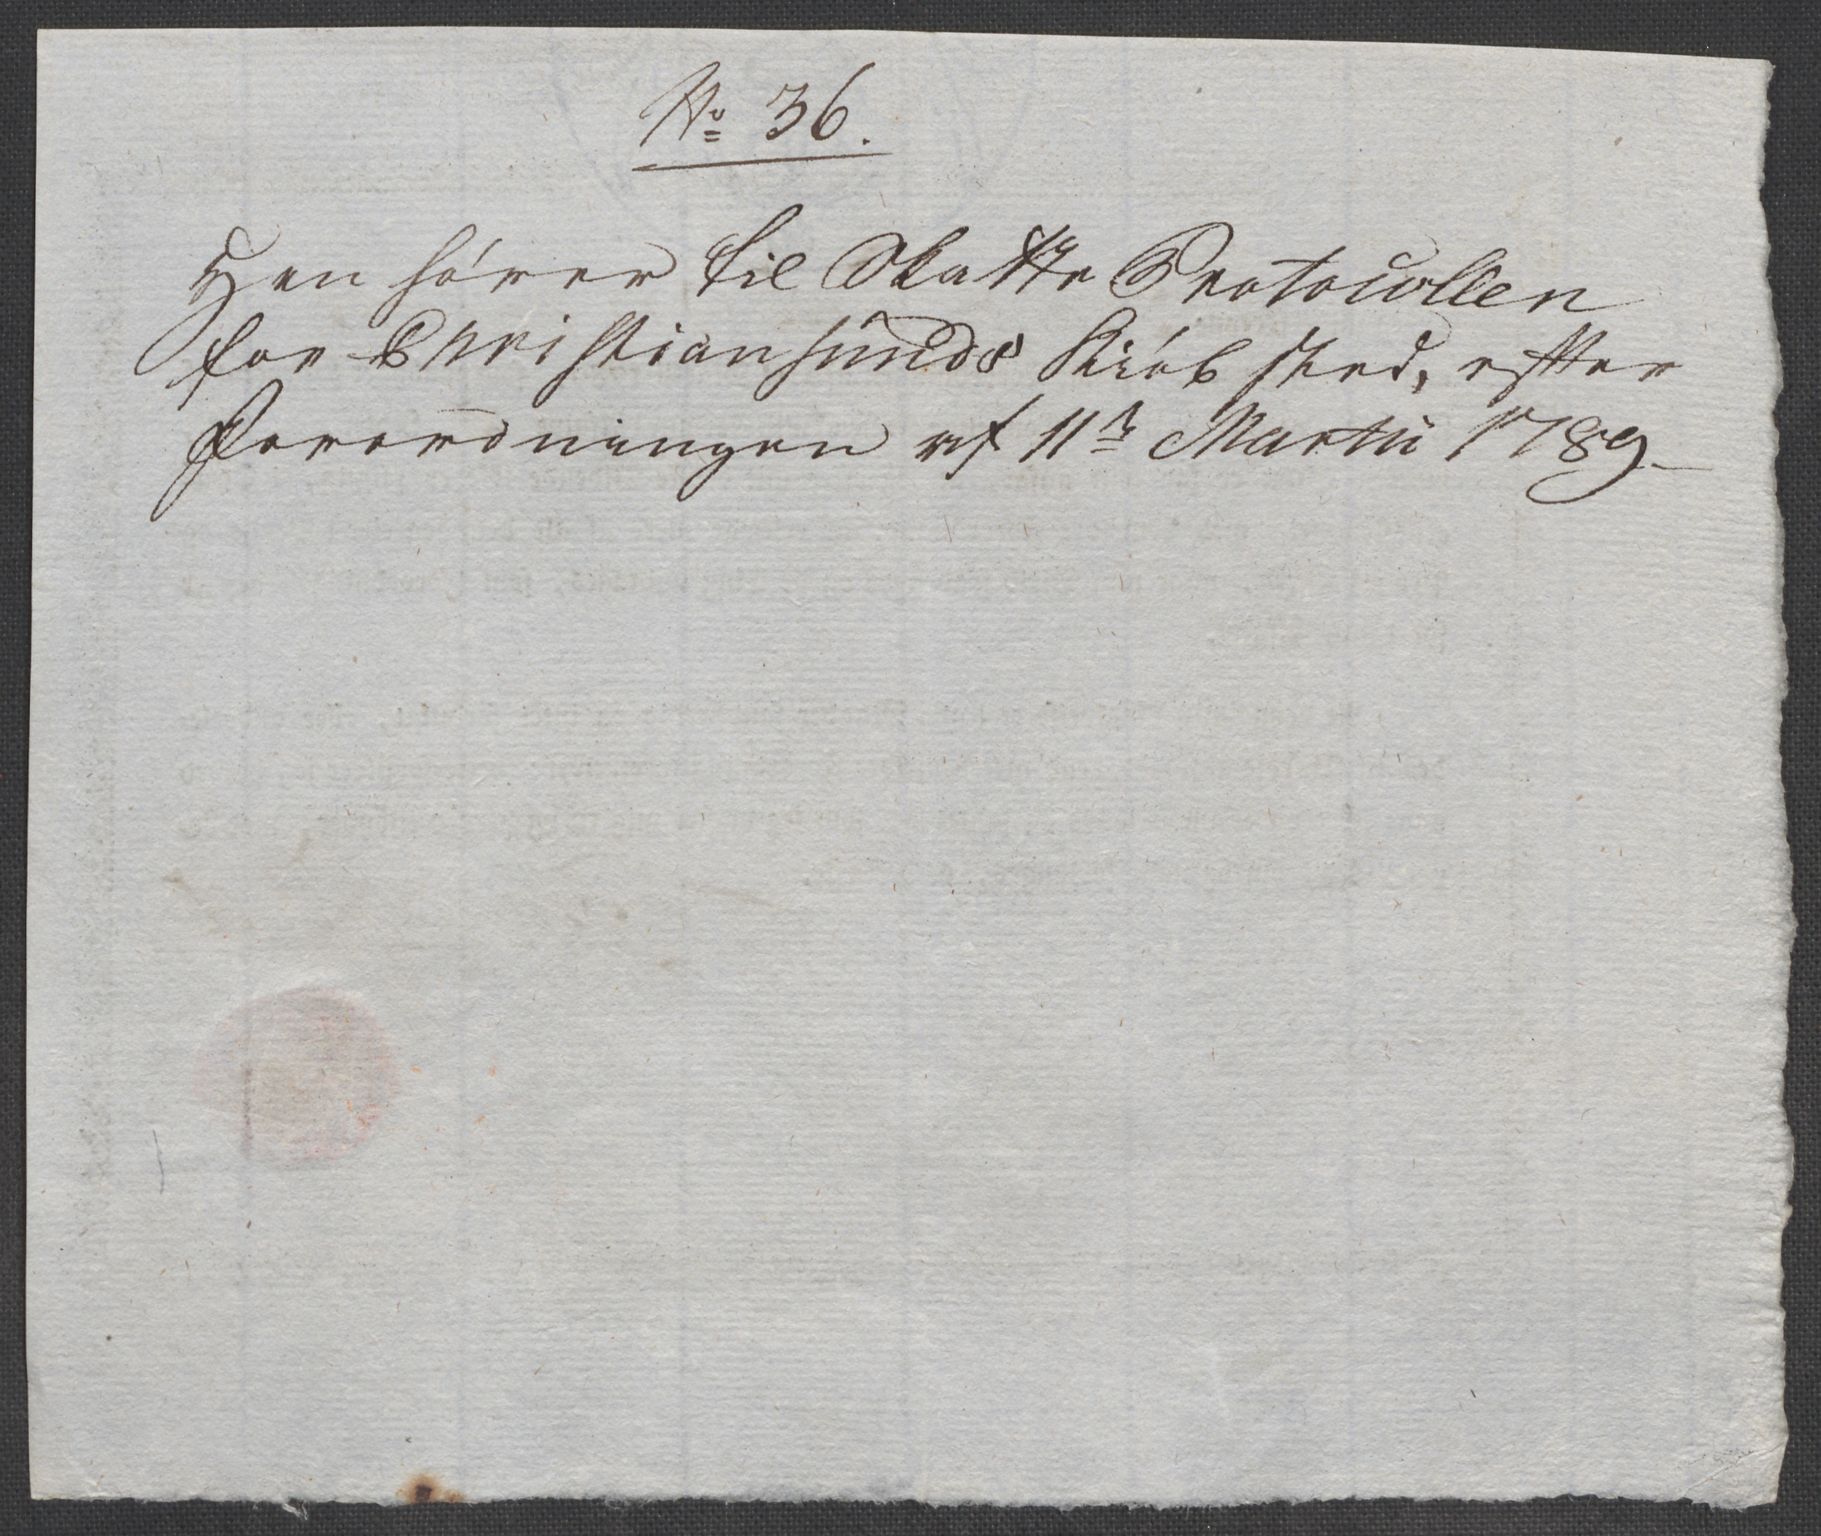 No 36.
Hen hörer til Skatte Protocollen
for Christiansunds Kiöbsted, efter
Forordningen af 11te Martii 1789.